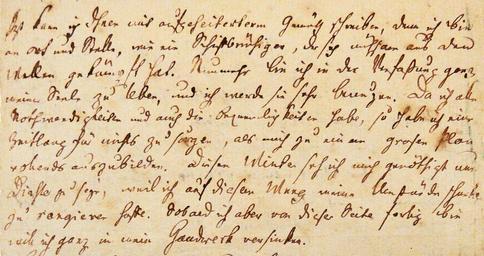 Jezt kann ich Ihnen mit aufgeheitertem Gemüth schreiben, denn ich bin
an Ort und Stelle, wie ein Schiffbrüchiger, der sich mühsam aus den
Wellen gekämpft hat. Nunmehr bin ich in der Verfaßung ganz
meiner Seele zu leben, und ich werde sie sehr benuzen. Da ich alle
Nothwendigkeiten und auch die Bequemlichkeiten habe, so habe ich eine
Zeitlang für nichts zu sorgen, als mich zu einem großen Plan
vollends auszubilden. Diesen Winter seh ich mich genöthigt nur
Dichter zu seyn, weil ich auf diesem Weeg meine Umstände schneller
zu rangieren hoffe. Sobald ich aber von dieser Seite fertig bin
will ich ganz in mein Handwerk versinken.